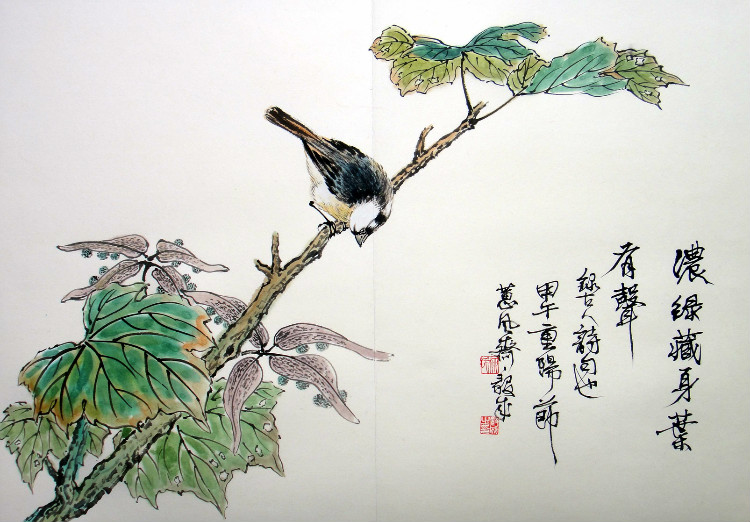 濃綠藏身葉
有聲
錄古人詩句也
甲午重陽節
蕙風齋